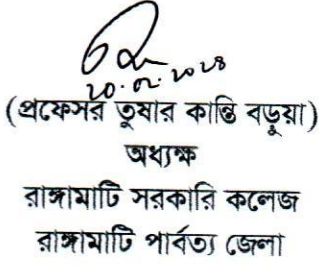 ২০.০২.২০২৪
(প্রফেসর তুষার কান্তি বড়ুয়া)
অধ্যক্ষ
রাঙ্গামাটি সরকারি কলেজ
রাঙ্গামাটি পার্বত্য জেলা